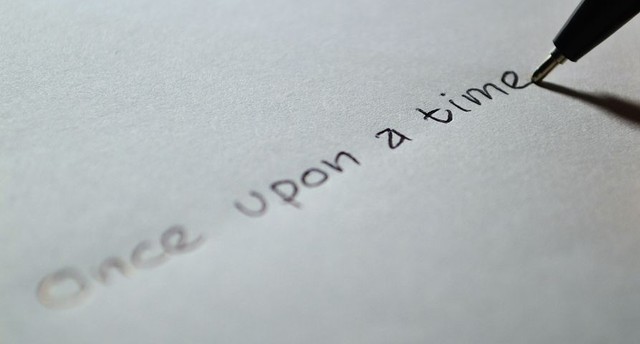 Once upon a time